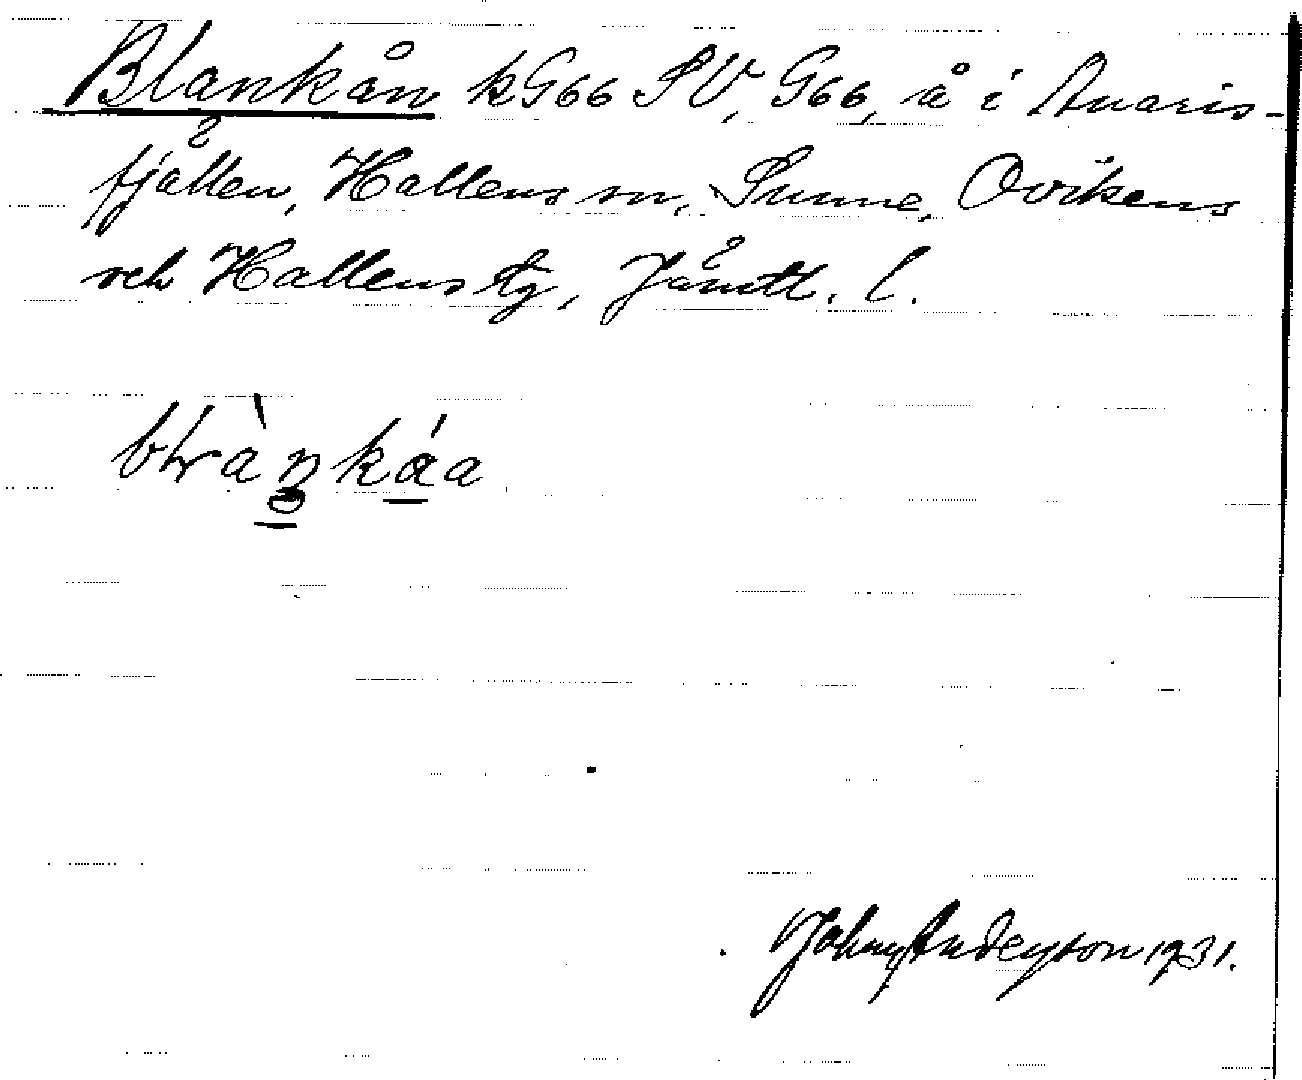 Blankån kG66 SV, G66, å i Anaris-
fjällen, Hallens sn, Sunne, Ovikens
och Hallens tg, Jämtl. l.
Johny Anderson 1931.